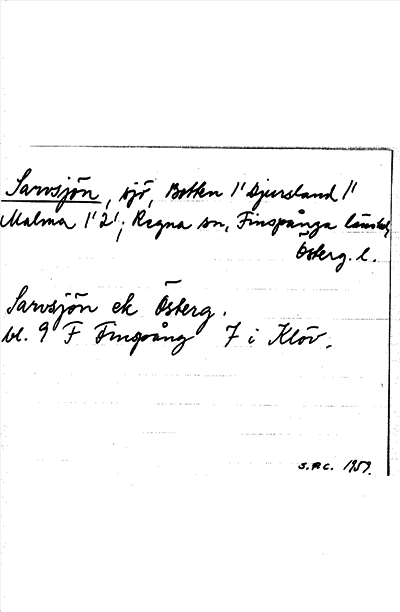 Sarvsjön, sjö, Botten 1' Djursland 1'
Malma 1' 2'; Regna sn, Finspånga länshd,
Österg. l.
Sarvsjön ek Österg.
bl. 9 F Finspång 7 i Klöv.
S.P.C. 1959.